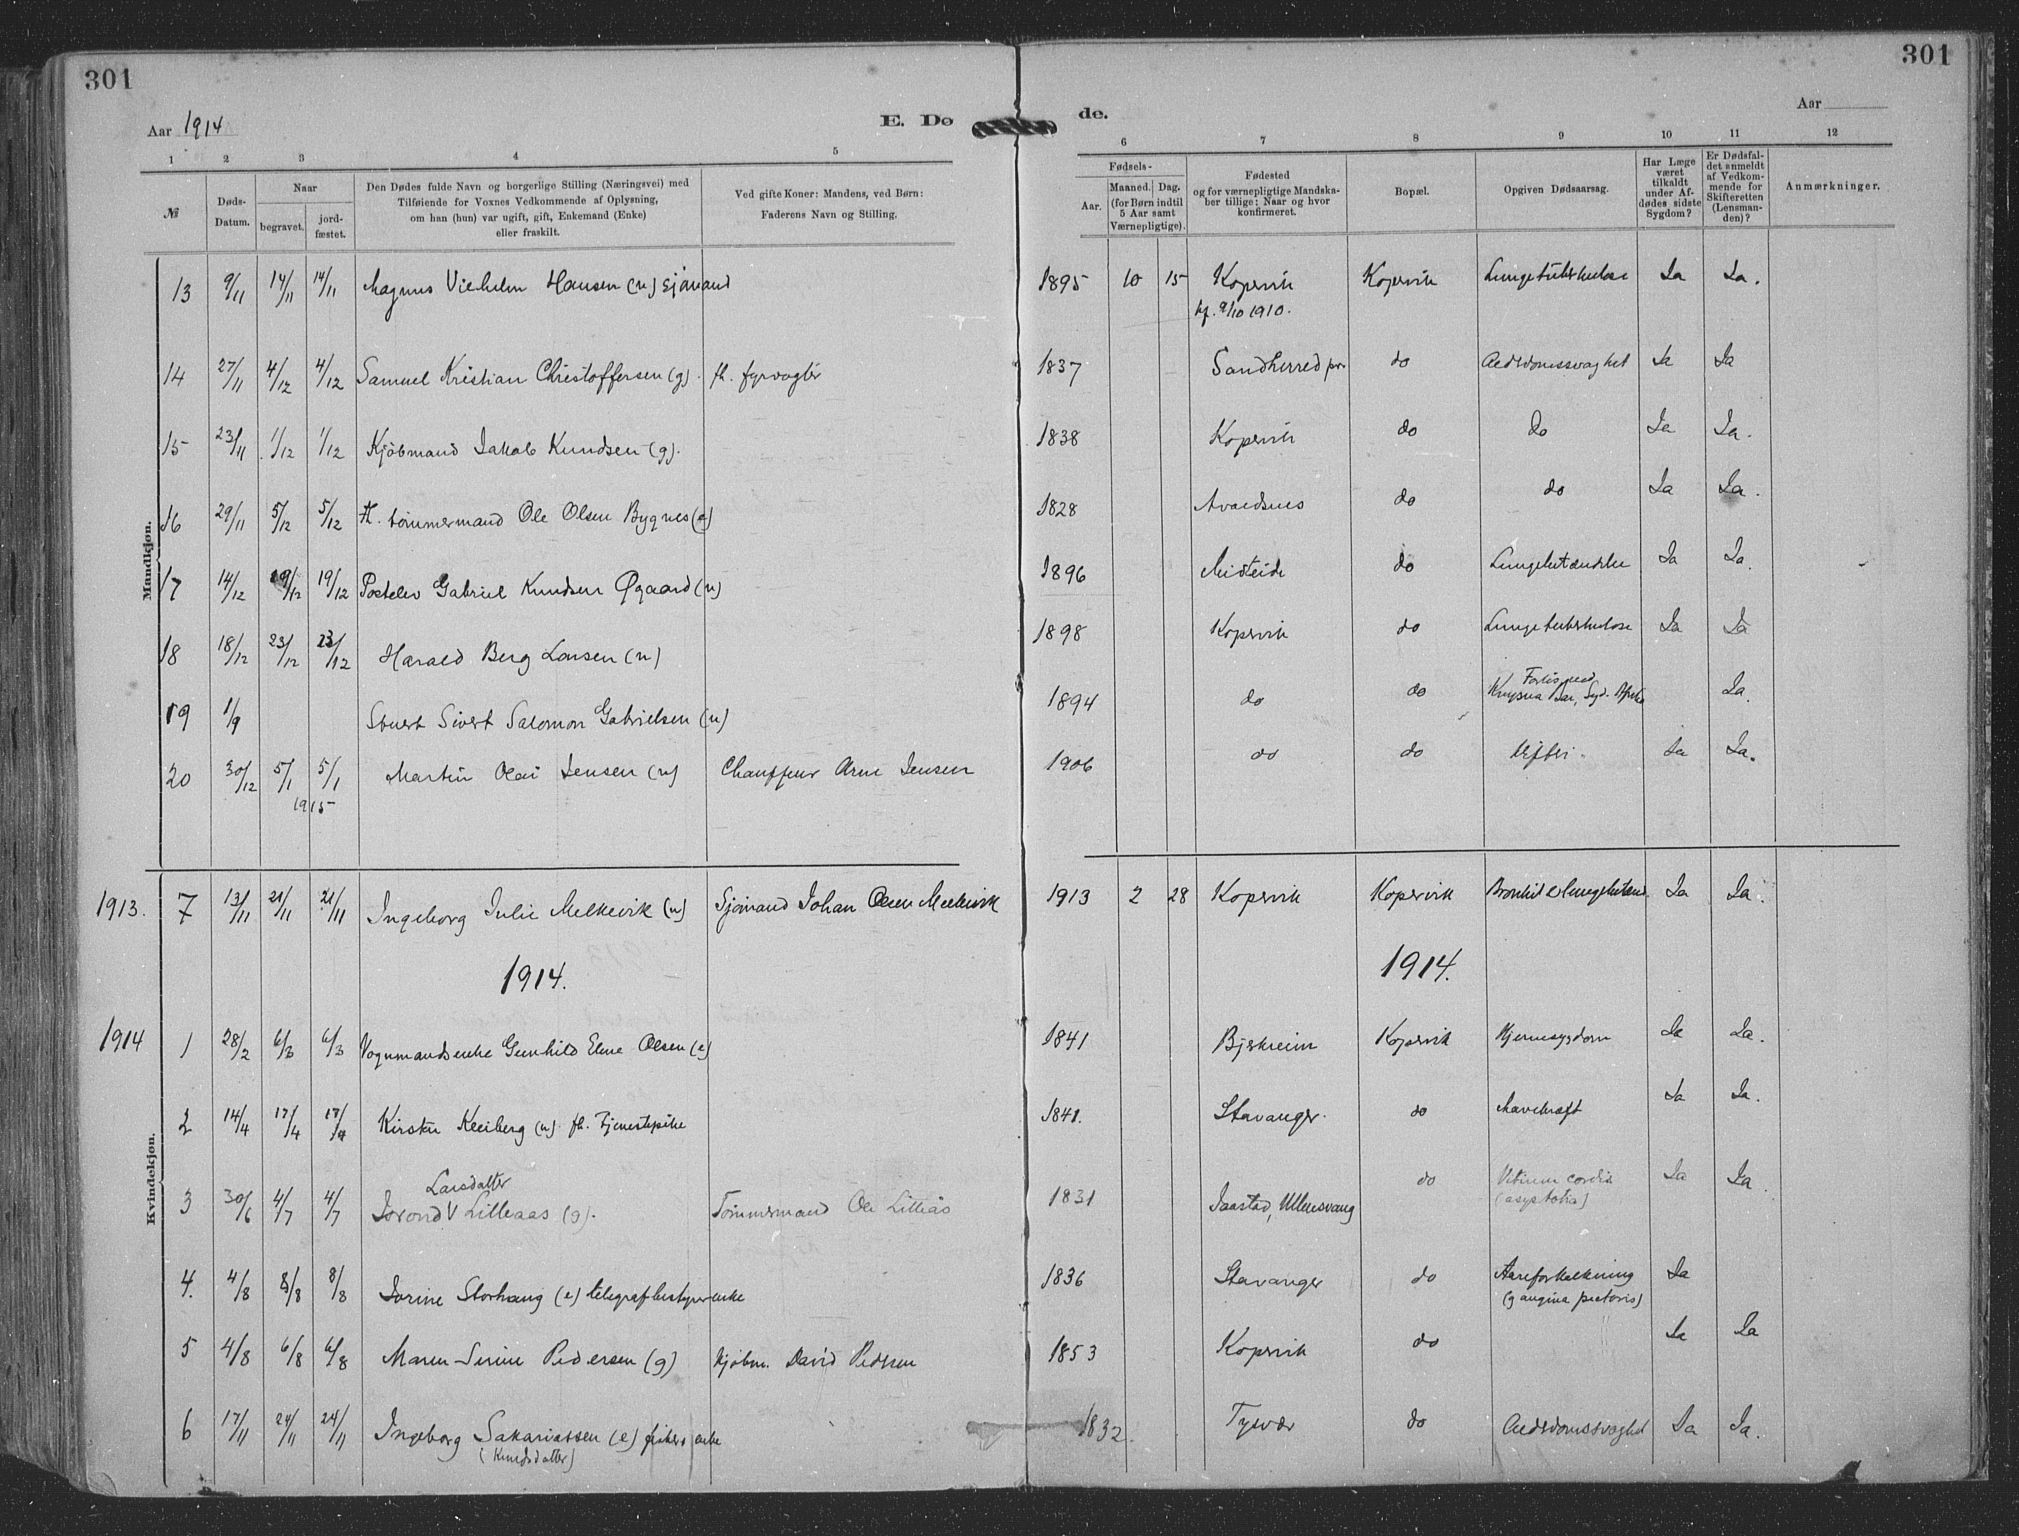 301
301
Aar 1914
E. Dø
de.
Aar
1 2 3 4 5 6 7 8 9 10 11 12
№
Døds-Datum.
Naar
begravet.
jord-fæstet.
Den Dødes fulde Navn og borgerlige Stilling (Næringsvei) med
Tilføiende for Voxnes Vedkommende af Oplysning,
om han (hun) var ugift, gift, Enkemand (Enke)
eller fraskilt.
Ved gifte Koner: Mandens, ved Børn:
Faderens Navn og Stilling.
Fødsels-
Aar.
Maaned. Dag.
(for Børn indtil
5 Aar samt
Værnepligtige).
Fødested
og for værnepligtige Mandska-
ber tillige: Naar og hvor
konfirmeret.
Bopæl.
Opgiven Dødsaarsag.
Har Læge
været
tilkaldt
under Af-
dødes sidste
Sygdom?
Er Dødsfal-
det anmeldt
af Vedkom-
mende for
Skifteretten
(Lensman-
den)?
Anmærkninger.
Mandkjøn.
13 9/11 14/11 14/11 Magnus Vilhelm Hansen (u) sjømand 1895 10 15 Kopervik Kopervik Lungetuberkulose Ja Ja.
kf. 9/10 1910.
14 27/11 4/12 4/12 Samuel Kristian Christoffersen (g). fh. fyrvogter 1837 Sandherred pr. do Alderdomssvaghet Ja Ja
15 23/11 1/12 1/12 Kjøbmand Jakob Knudsen (g). 1838 Kopervik do do Ja Ja.
16 29/11 5/12 5/12 fh. tømmermand Ole Olsen Bygnes (e) 1828 Avaldsnes do do Ja Ja.
17 14/12 19/12 19/12 Postelev Gabriel Knudsen Øgaard (u) 1896 do Lungebetændelse Ja Ja.
18 18/12 23/12 23/12 Harald Berg Larsen (u) 1898 Kopervik do Lungetuberkulose Ja Ja
19 1/9 Stuert Sivert Salomon Gabrielsen (u) 1894 do do Forlis ved
Knysna Bar, Syd. Afrika Ja.
20 30/12 5/1 5/1 Martin Olai Jensen (u) Chauffeur Arne Jensen 1906 do do Difteri. Ja Ja.
1915
1913. 7 13/11 21/11 21/11 Ingeborg Julie Melkevik (u) Sjømand Johan Olsen Melkevik 1913 2 28 Kopervik Kopervik Ja Ja.
1914. 1914.
Kvindekjøn.
1914 1 28/2 6/3 6/3 Vognmandsenke Gunhild Elene Olsen (e) 1841 Bjerkreim Kopervik Hjernesygdom Ja Ja.
2 14/4 17/4 17/4 Kirsten (u) fh. Tjenestepike 1841. Stavanger. do Mavekræft Ja Ja.
Larsdatter
3 30/6 4/7 4/7 Jorond V Lilleaas (g). Tømmermand Ole Lilleås 1831 Jaastad, Ullensvang do Vitium cordis
(asystolia) Ja Ja.
4. 4/8 8/8 8/8 Jorine Storhaug (e) telegrafbestyrerenke 1836 Stavanger do Aareforkalkning
(g angina pectoris) Ja
5 4/8 6/8 6/8 Maren Serine Pedersen (g) Kjøbm. David Pedersen 1853 Kopervik do Ja Ja
6 17/11 24/11 24/11 Ingeborg Sakariassen (e) fiskers enke 1832. Tysvær do Alderdomssvaghet Ja Ja.
(Knudsdatter)